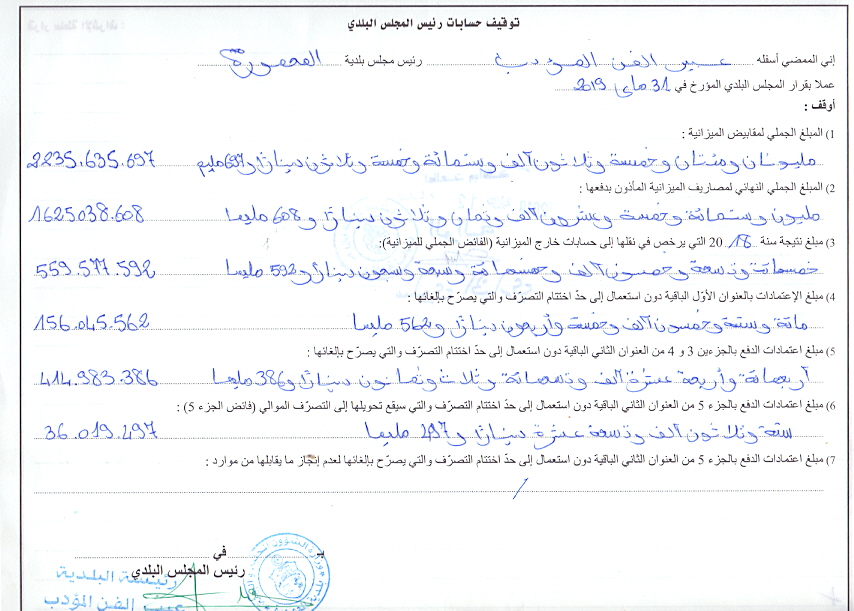 توقيف حسابات رئيس المجلس البلدي
إني الممضي أسفله عبير الفن المؤدب رئيس مجلس بلدية المحمدية
عملا بقرار المجلس البلدي المؤرخ في 31 ماي 2019
أوقف :
1) المبلغ الجملي لمقابيض الميزانية :
مليونان ومئتان وخمسة وثلاثون آلف وستمائة وخمسة وثلاثون دينارًا و697 مليم 2235.635.697
2) المبلغ الجملي النهائي لمصاريف الميزانية المأذون بدفعها :
مليون وستمائة وخمسة وعشرون آلف وثمان وثلاثون دينارًا و 608 مليما 1625038.608
3) مبلغ نتيجة سنة 2018 التي يرخص في نقلها إلى حسابات خارج الميزانية (الفائض الجملي للميزانية):
خمسمائة وتسعة وخمسون آلف وخمسمائة وسبعة وسبعون دينارًا و 592 مليما 559.577.592
4) مبلغ الإعتمادات بالعنوان الأوّل الباقية دون استعمال إلى حدّ اختتام التصرّف والتي يصرّح بإلغائها :
مائة وستة وخمسون آلف وخمسة وأربعون دينارًا و 562 مليما 156.045.562
5) مبلغ اعتمادات الدفع بالجزءين 3 و 4 من العنوان الثاني الباقية دون استعمال إلى حدّ اختتام التصرّف والتي يصرّح بإلغائها :
أربعمائة وأربعة عشرة آلف وتسعمائة وثلاث وثمانون دينارًا و 386 مليما 414.983.386
6) مبلغ اعتمادات الدفع بالجزء 5 من العنوان الثاني الباقية دون استعمال إلى حدّ اختتام التصرّف والتي سيقع تحويلها إلى التصرف الموالي (فائض الجزء 5) :
ستة وثلاثون آلف وتسعة عشرة دينارًا و 497 مليما 36.019.497
7) مبلغ اعتمادات الدفع بالجزء 5 من العنوان الثاني الباقية دون استعمال إلى حدّ اختتام التصرّف والتي يصرّح بإلغائها لعدم إنجاز ما يقابلها من موارد :
/
بـ في
رئيس المجلس البلدي
رئيسة البلدية
عبير الفن المؤدب